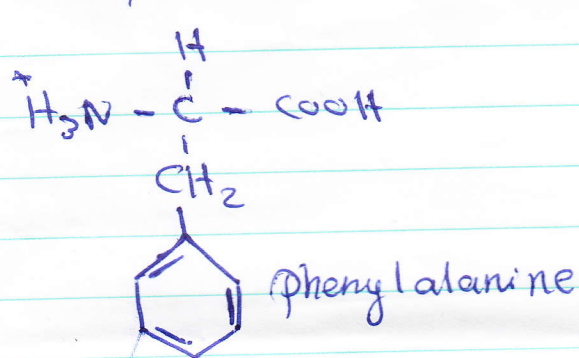 H
⁺H₃N - C - COOH
CH₂
phenylalanine